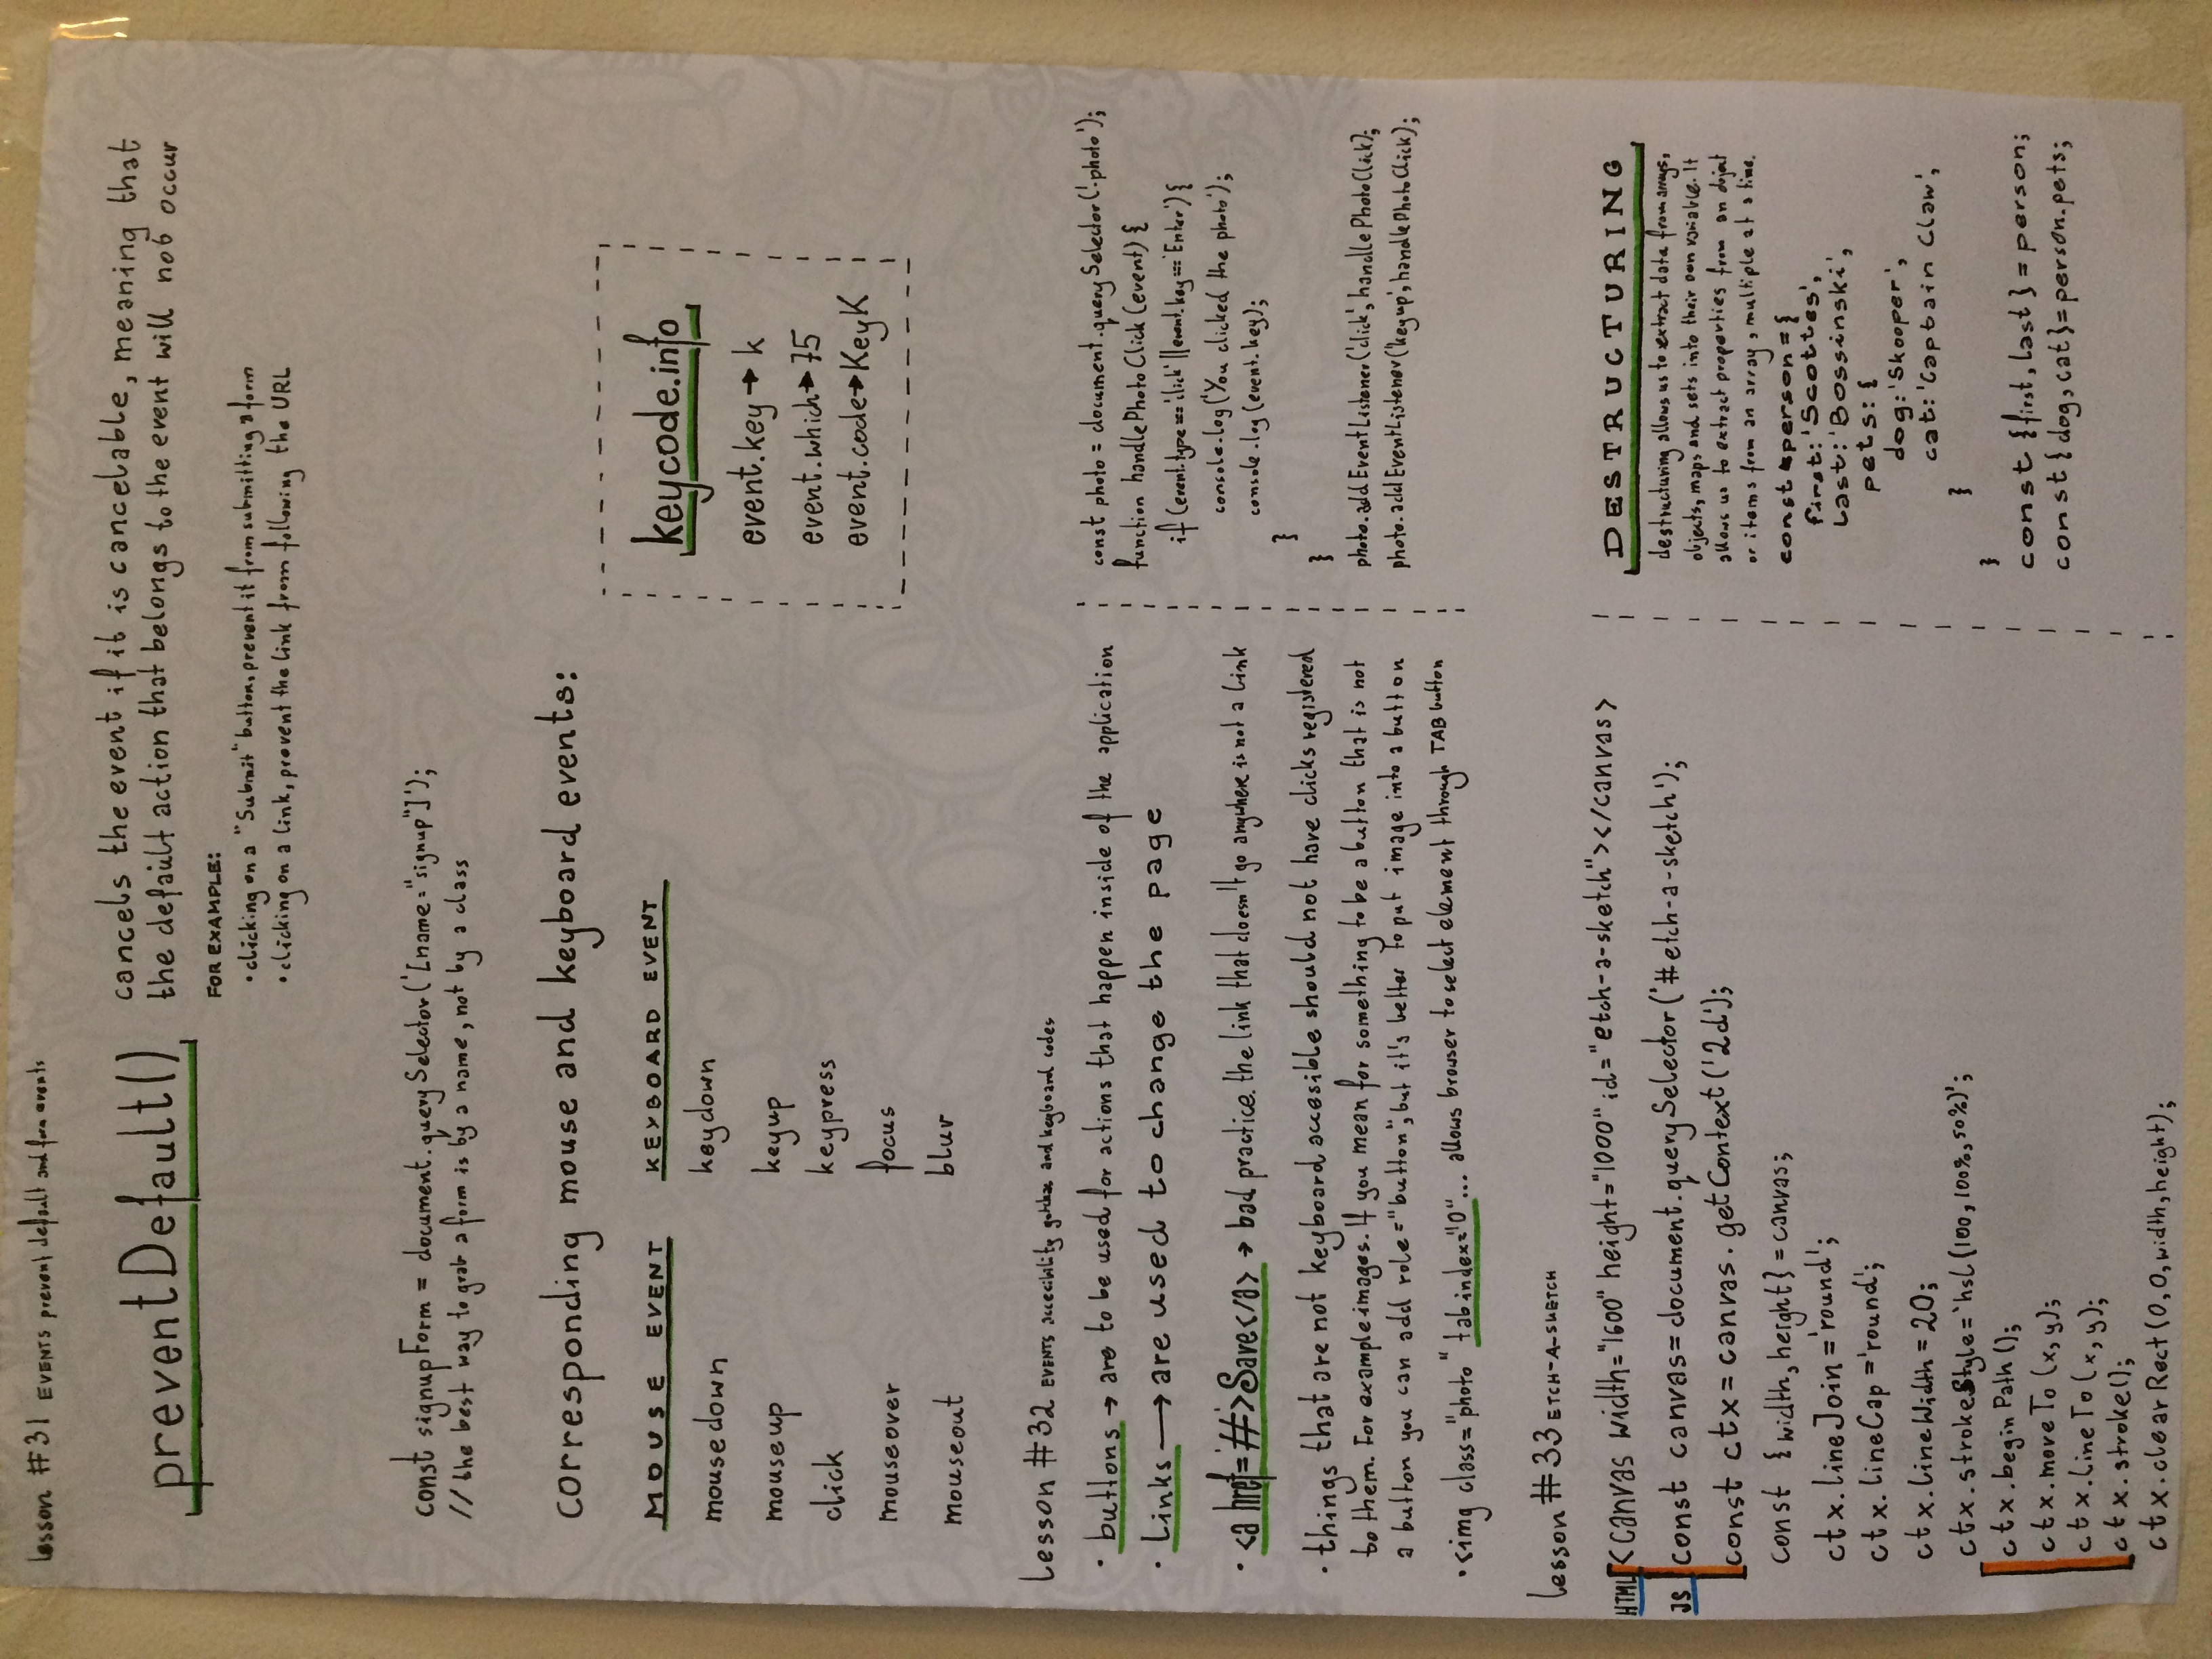 lesson #31 EVENTS prevent default and form events
preventDefault()
cancels the event if it is cancelable, meaning that
the default action that belongs to the event will not occur
FOR EXAMPLE:
• clicking on a "Submit" button, prevent it from submitting a form
• clicking on a link, prevent the link from following the URL
const signupForm = document.querySelector('[name="signup"]');
// the best way to grab a form is by a name, not by a class
corresponding mouse and keyboard events:
MOUSE EVENT KEYBOARD EVENT
mousedown keydown
mouseup keyup
click keypress
mouseover focus
mouseout blur
keycode.info
event.key → k
event.which → 75
event.code → KeyK
lesson #32 EVENTS accecibility gotchas and keyboard codes
• buttons → are to be used for actions that happen inside of the application
• Links → are used to change the page
• <a href='#'>Save</a> → bad practice. the link that doesn't go anywhere is not a link
• things that are not keyboard accesible should not have clicks registered
to them. For example images. If you mean for something to be a button that is not
a button you can add role="button", but it's better to put image into a button
• <img class="photo" tabindex="0"... allows browser to select element through TAB button
const photo = document.querySelector('.photo');
function handlePhotoClick (event) {
if (event.type === 'click' || event.key === 'Enter') {
console.log('You clicked the photo');
console.log(event.key);
}
}
photo.addEventListener('click', handlePhotoClick);
photo.addEventListener('keyup', handlePhotoClick);
lesson #33 ETCH-A-SKETCH
HTML <canvas width="1600" height="1000" id="etch-a-sketch"></canvas>
JS const canvas = document.querySelector('#etch-a-sketch');
const ctx = canvas.getContext('2d');
const {width, height} = canvas;
ctx.lineJoin = 'round';
ctx.lineCap = 'round';
ctx.lineWidth = 20;
ctx.strokeStyle = 'hsl(100, 100%, 50%)';
ctx.beginPath();
ctx.moveTo(x, y);
ctx.lineTo(x, y);
ctx.stroke();
ctx.clearRect(0, 0, width, height);
DESTRUCTURING
destructuring allows us to extract data from arrays,
objects, maps and sets into their own variable. It
allows us to extract properties from an object
or items from an array, multiple at a time.
const person = {
first: 'Scottes',
last: 'Bossinski',
pets: {
dog: 'Skooper',
cat: 'Captain Claw',
}
}
const {first, last} = person;
const {dog, cat} = person.pets;